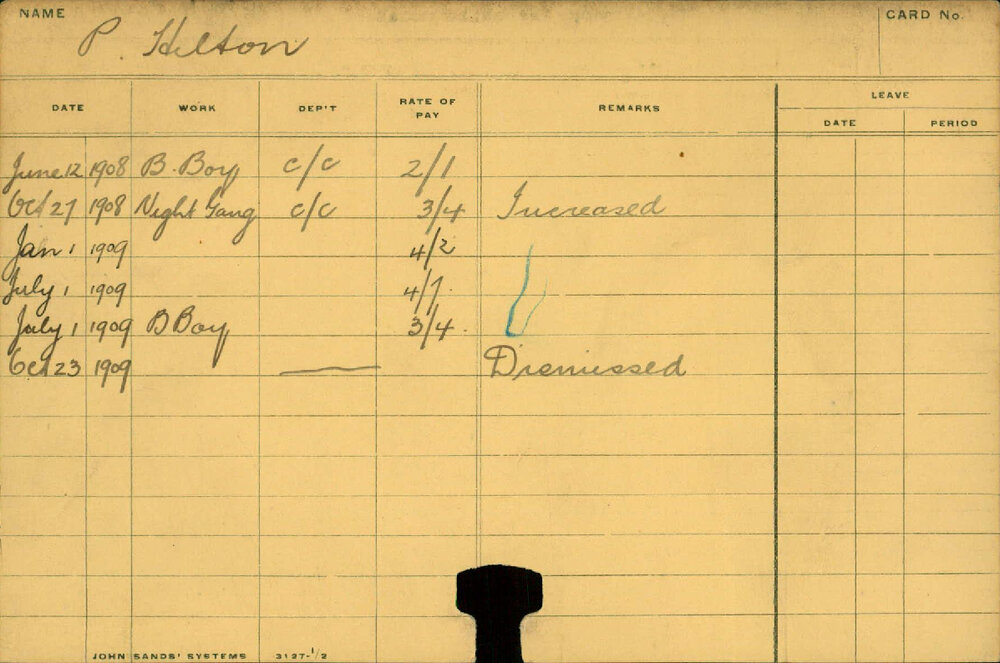 NAME P. Hilton CARD No.
DATE WORK DEP'T RATE OF PAY REMARKS LEAVE
DATE PERIOD
June 12 1908 B. Boy c/c 2/1
Oct 27 1908 Night Gang c/c 3/4 Increased
Jan 1 1909 4/2
July 1 1909 4/7
July 1 1909 B Boy 3/4
Oct 23 1909 — Dismissed
JOHN SANDS' SYSTEMS 3127-1/2